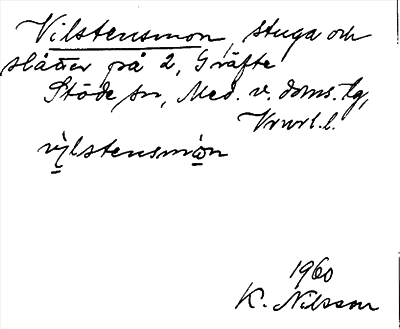 Vilstensmon, stuga och
slåtter på 2, Gräfte
Stöde sn, Med. v. doms. tg,
vilstensmòn
1960
K. Nilsson